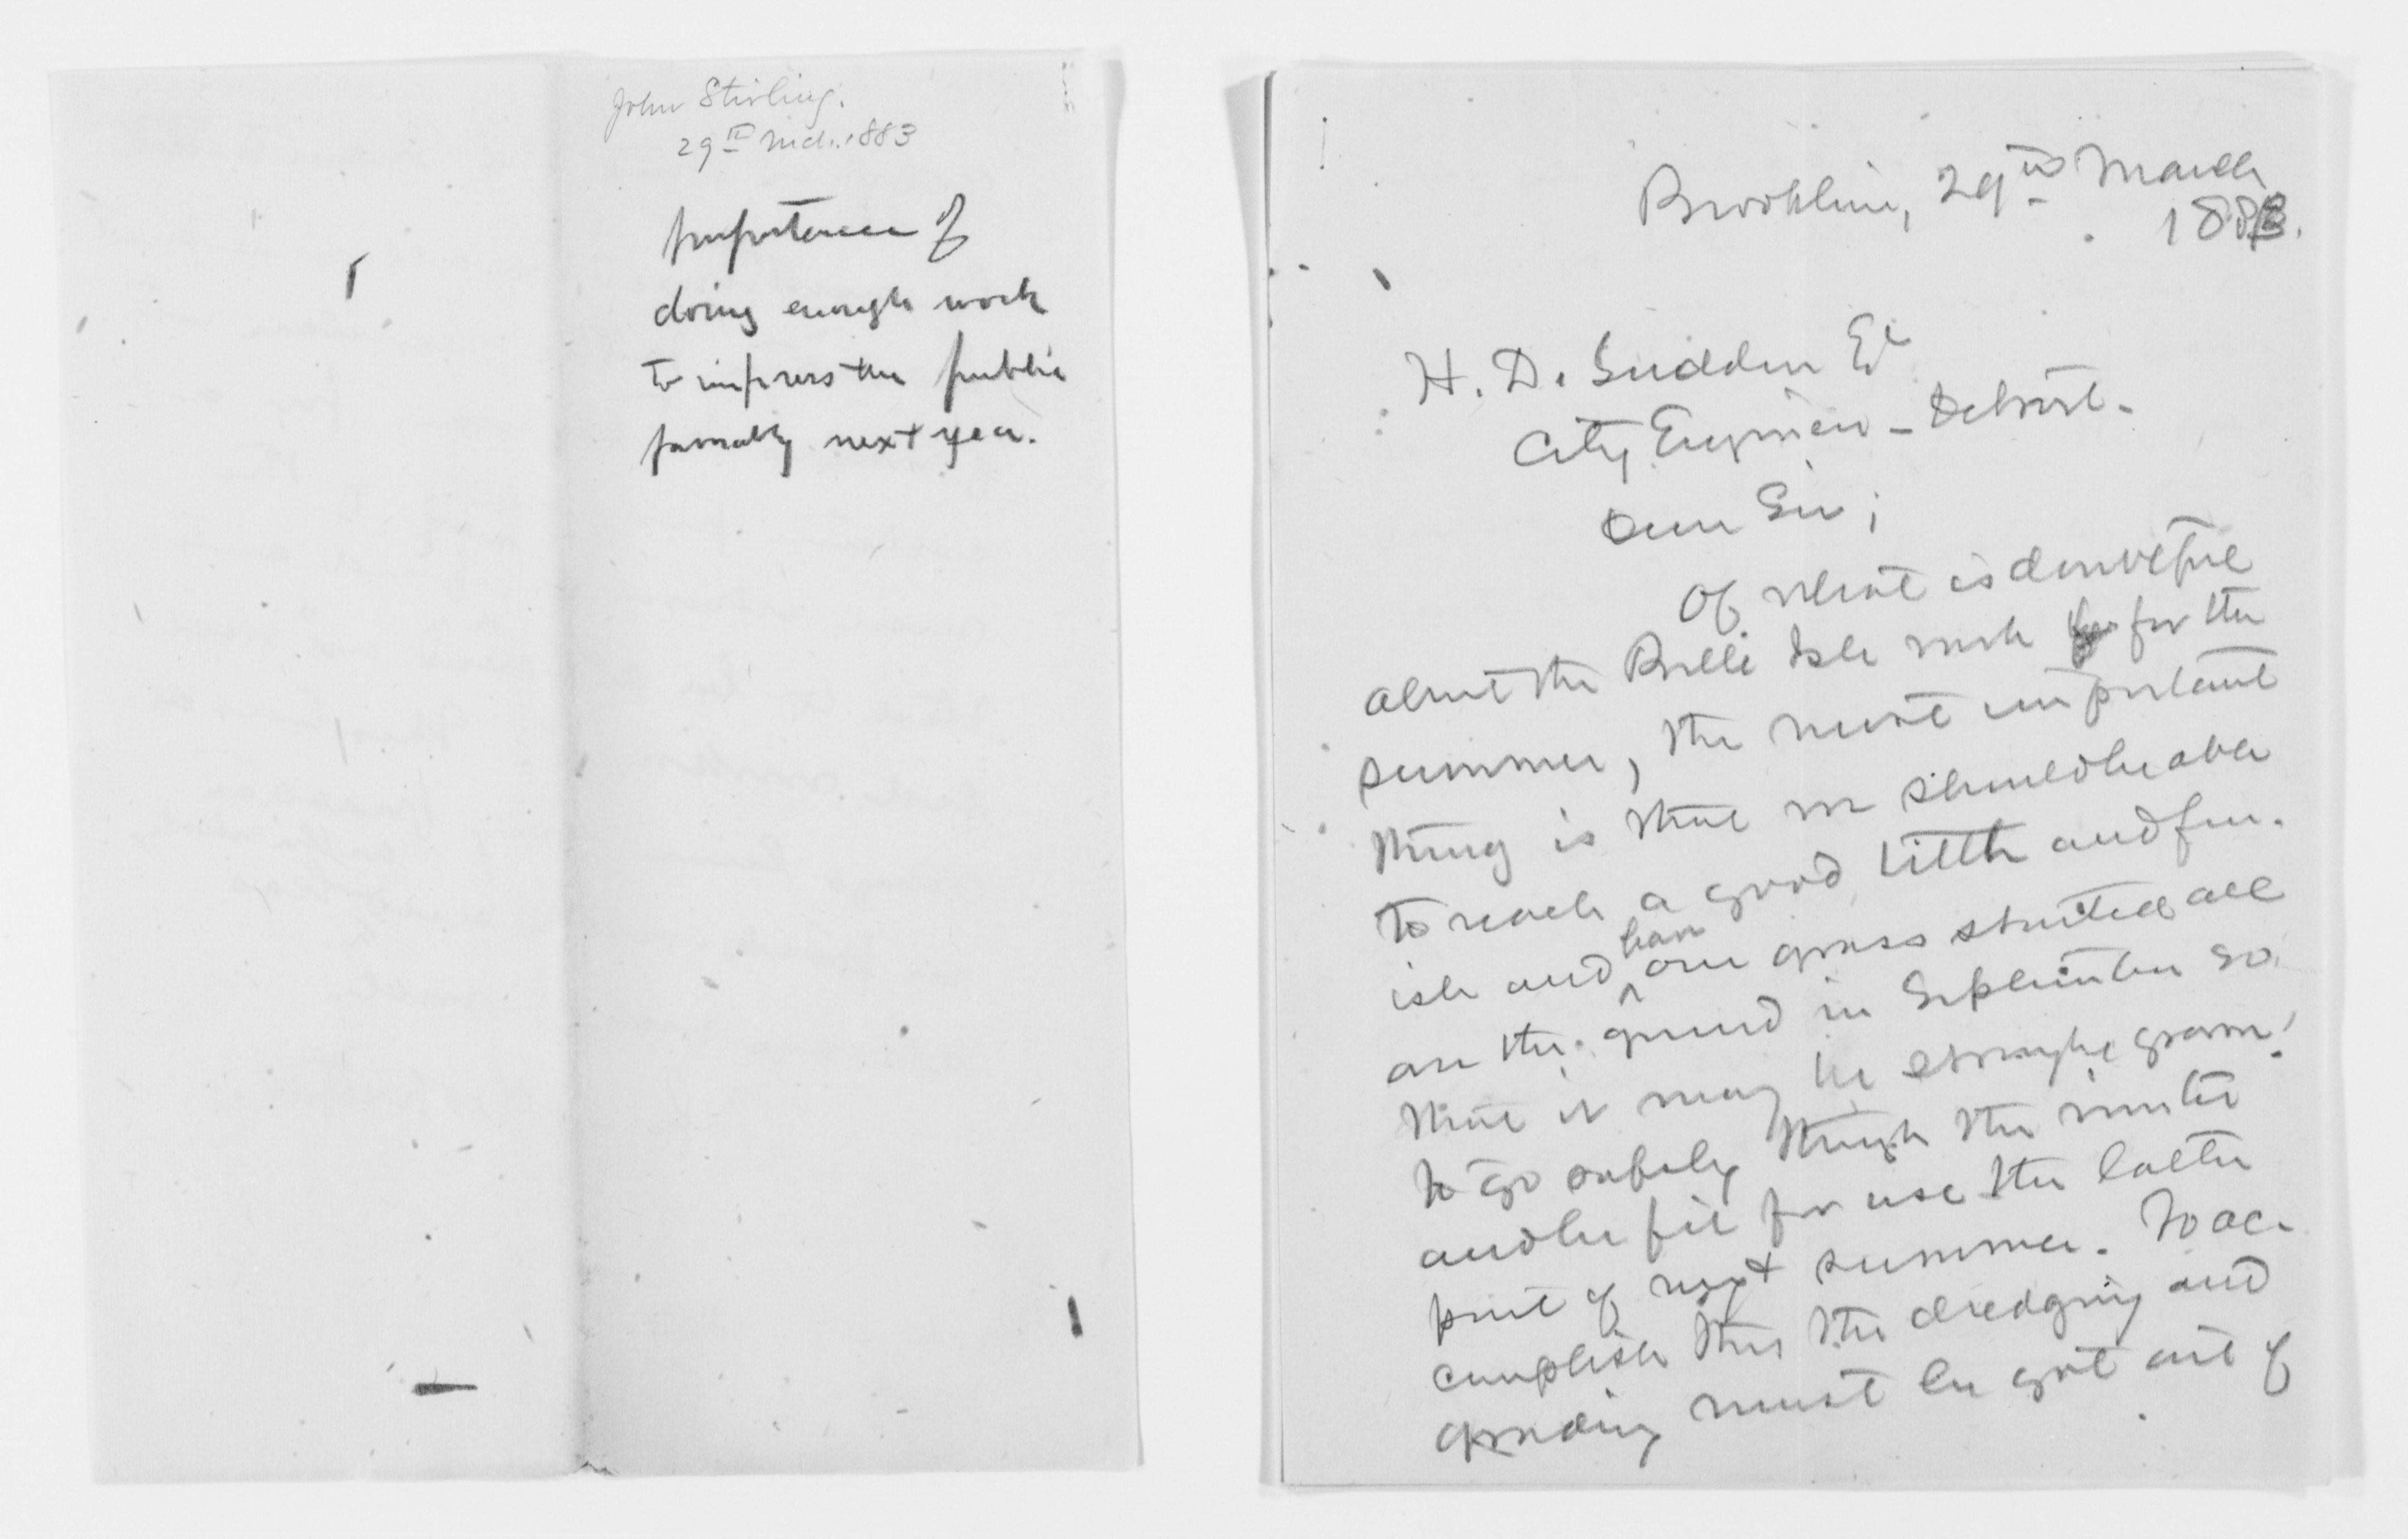 John Stirling.
29th Mch. 1883
Importance of
doing enough work
to impress the public
favorably next year.
Brookline, 29th March
1883.
H. D. Ludden Esq
City Engineer - Detroit.
Dear Sir;
Of what is doubtful
about the Belle Isle work for the
summer, the most important
thing is that we should be able
to reach a good tilth and fin-
ish and have our grass started all
on the ground in September so
that it may be strongly grown
to go safely through the winter
and be fit for use the latter
part of next summer. To ac-
complish this the dredging and
grading must be got out of